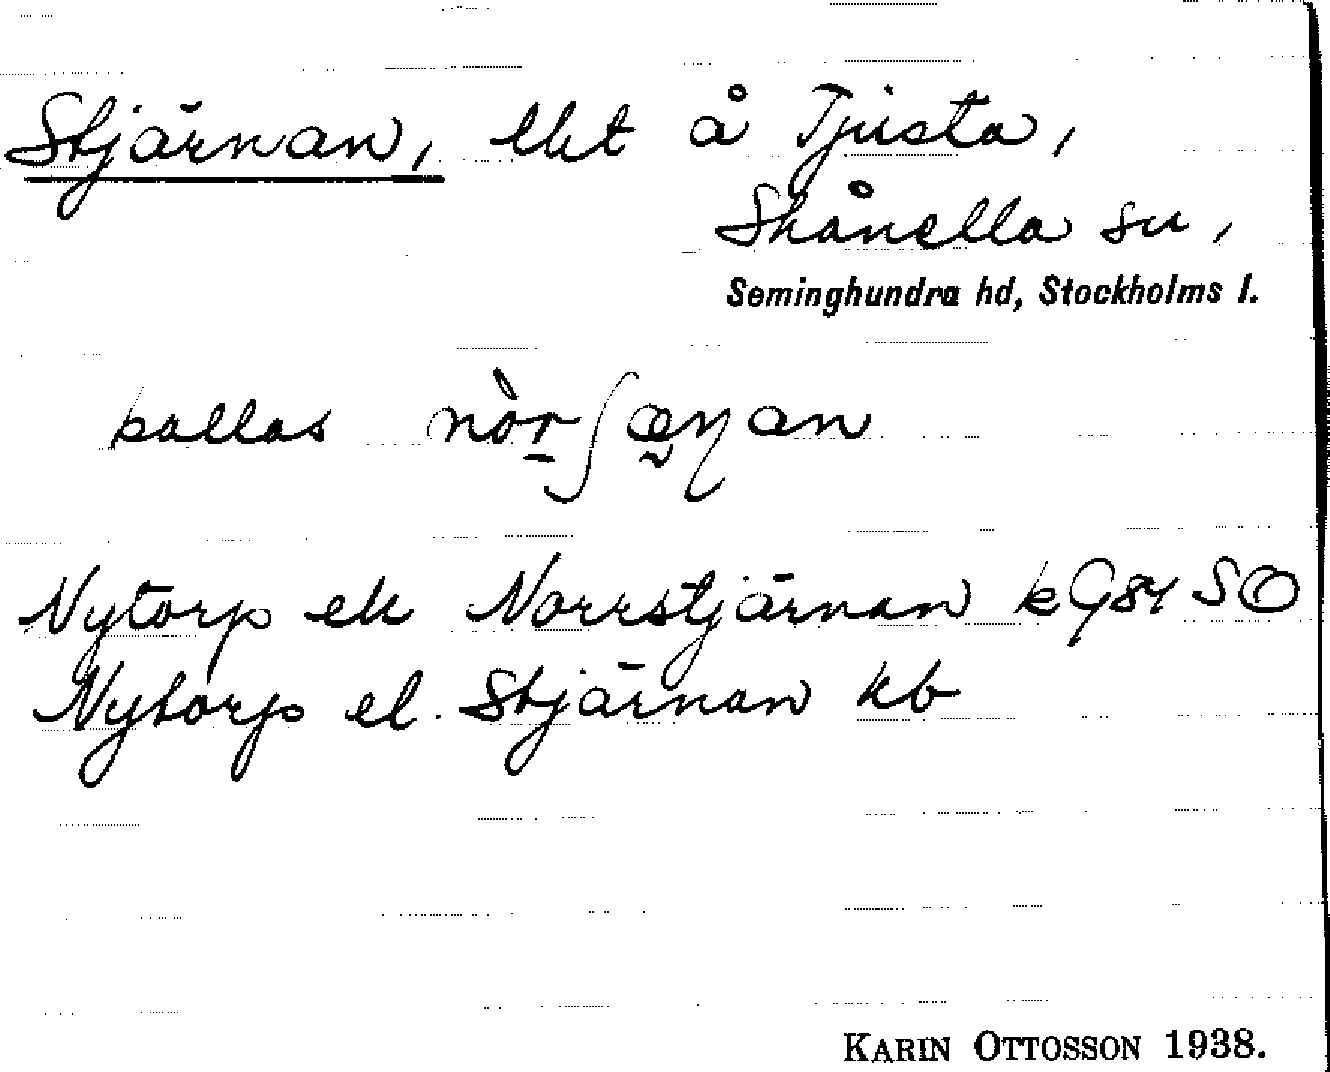 Stjärnan, lht å Tjusta,
Skånella sn,
Seminghundra hd, Stockholms l.
kallas
Nytorp ell Norrstjärnan k G84 SO
Nytorp el. Stjärnan kb
KARIN OTTOSSON 1938.